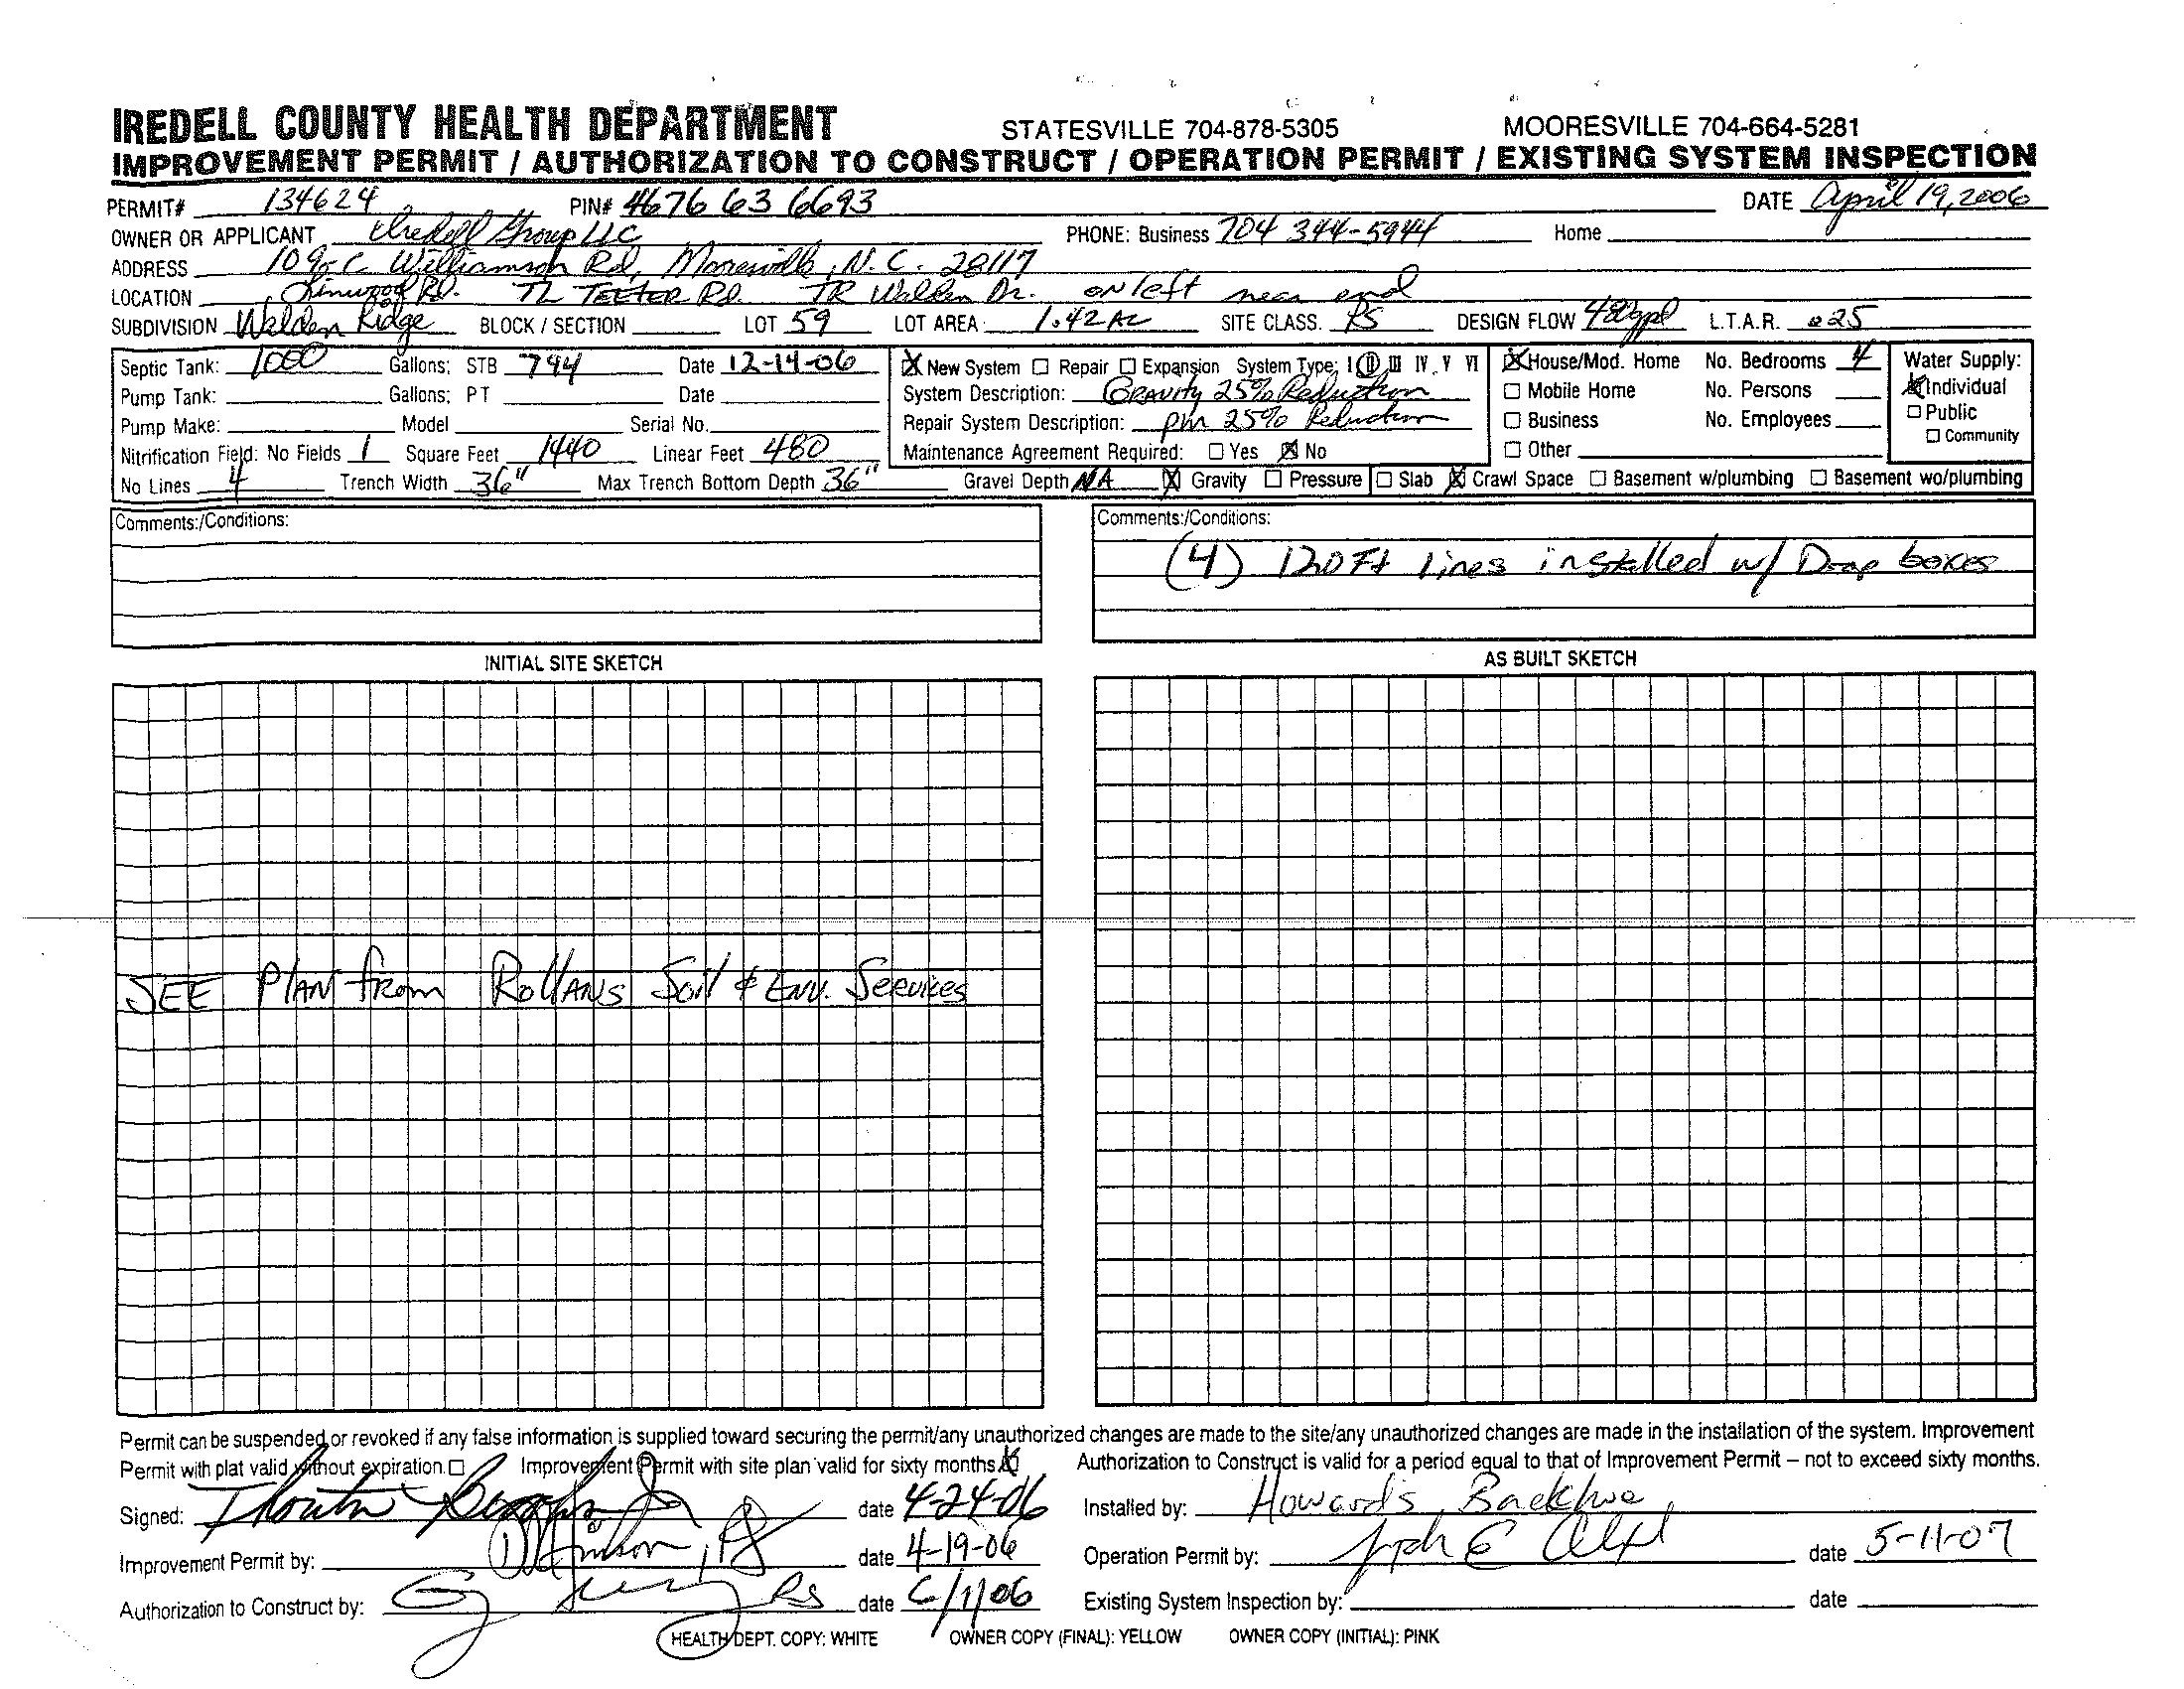 IREDELL COUNTY HEALTH DEPARTMENT STATESVILLE 704-878-5305 MOORESVILLE 704-664-5281
IMPROVEMENT PERMIT / AUTHORIZATION TO CONSTRUCT / OPERATION PERMIT / EXISTING SYSTEM INSPECTION
PERMIT# 134624 PIN# 4676 63 6693 DATE April 19, 2006
OWNER OR APPLICANT Iredell Group LLC PHONE: Business 704 344-5944 Home
ADDRESS 109-C Williamson Rd, Mooresville, N.C. 28117
LOCATION Linwood Rd. TL TEETER Rd. TR Walden Dr. on left near end
SUBDIVISION Walden Ridge BLOCK / SECTION LOT 59 LOT AREA 1.42 AC SITE CLASS. PS DESIGN FLOW 480gpd L.T.A.R. .25
Septic Tank: 1000 Gallons; STB 744 Date 12-14-06 X New System ☐ Repair ☐ Expansion System Type: I II III IV V VI X House/Mod. Home No. Bedrooms 4 Water Supply:
Pump Tank: Gallons; PT Date System Description: Gravity 25% Reduction ☐ Mobile Home No. Persons X Individual
Pump Make: Model Serial No. Repair System Description: 25% Reduction ☐ Business No. Employees ☐ Public
Nitrification Field: No Fields 1 Square Feet 1440 Linear Feet 480 Maintenance Agreement Required: ☐ Yes ☒ No ☐ Other ☐ Community
No Lines 4 Trench Width 36" Max Trench Bottom Depth 36" Gravel Depth NA ☒ Gravity ☐ Pressure ☐ Slab ☒ Crawl Space ☐ Basement w/plumbing ☐ Basement wo/plumbing
Comments:/Conditions: Comments:/Conditions:
(4) 120 Ft lines installed w/ Drop boxes
INITIAL SITE SKETCH AS BUILT SKETCH
SEE PLAN from Rollans Soil & Env. Services
Permit can be suspended or revoked if any false information is supplied toward securing the permit/any unauthorized changes are made to the site/any unauthorized changes are made in the installation of the system. Improvement
Permit with plat valid without expiration. ☐ Improvement Permit with site plan valid for sixty months. ☒ Authorization to Construct is valid for a period equal to that of Improvement Permit – not to exceed sixty months.
Signed: date 4-24-06 Installed by: Howard's Backhoe
Improvement Permit by: date 4-19-06 Operation Permit by: date 5-11-07
Authorization to Construct by: RS date 6/1/06 Existing System Inspection by: date
HEALTH DEPT. COPY: WHITE OWNER COPY (FINAL): YELLOW OWNER COPY (INITIAL): PINK